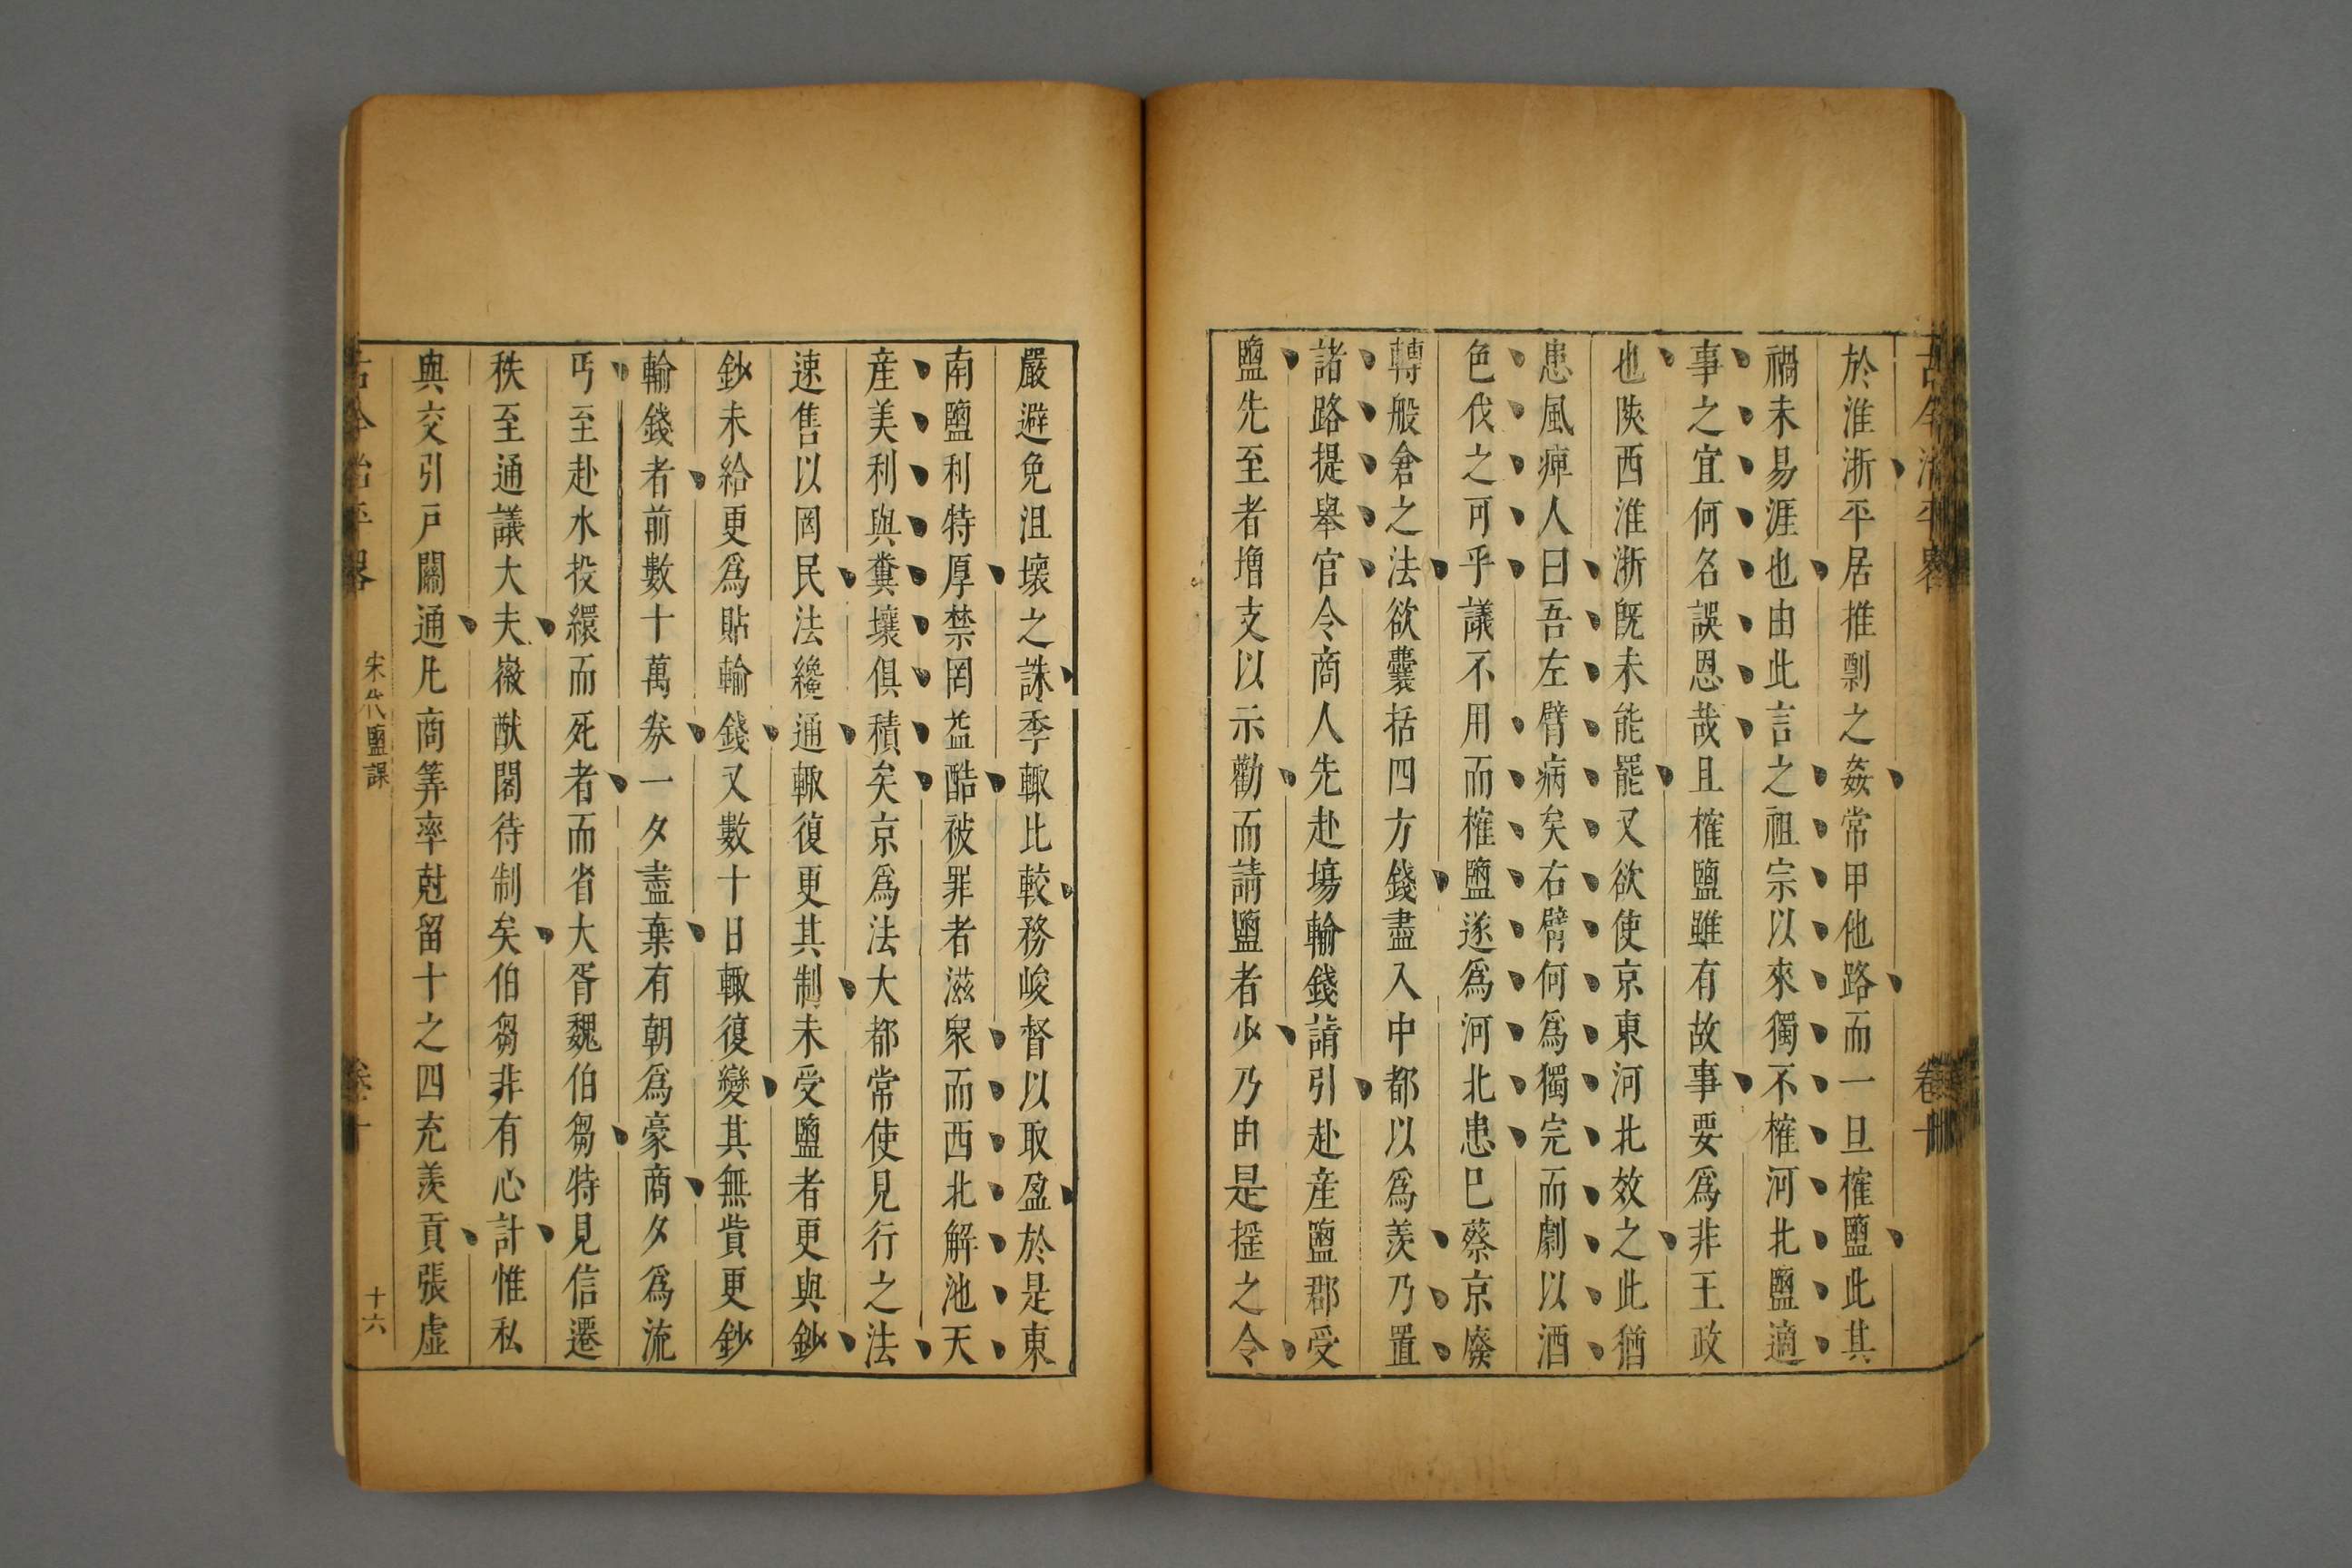 古今治平畧
卷十
於淮浙平居推剽之姦常甲他路而一旦榷鹽此其
禍未易涯也由此言之祖宗以來獨不榷河北鹽適
事之宜何名誤恩哉且榷鹽雖有故事要爲非王政
也陜西淮浙旣未能罷又欲使京東河北效之此猶
患風痺人曰吾左臂病矣右臂何爲獨完而劇以酒
色伐之可乎議不用而榷鹽遂爲河北患巳蔡京廢
轉般倉之法欲囊括四方錢盡入中都以爲羨乃置
諸路提舉官令商人先赴塲輸錢請引赴產鹽郡受
鹽先至者增支以示勸而請鹽者少乃由是㨗之令
嚴避免沮壞之誅季輙比較務峻督以取盈於是東
南鹽利特厚禁罔益酷被罪者滋衆而西北解池天
產美利與糞壤俱積矣京爲法大都常使見行之法
速售以罔民法纔通輙復更其制未受鹽者更與鈔
鈔未給更爲貼輸錢又數十日輙復變其無貲更鈔
輸錢者前數十萬劵一夕盡棄有朝爲豪商夕爲流
丐至赴水投繯而死者而省大胥魏伯芻特見信遷
秩至通議大夫徽猷閣待制矣伯芻非有心計惟私
與交引戸關通凢商筭率尅留十之四充羨貢張虛
古今治平畧
宋代鹽課
卷十
十六